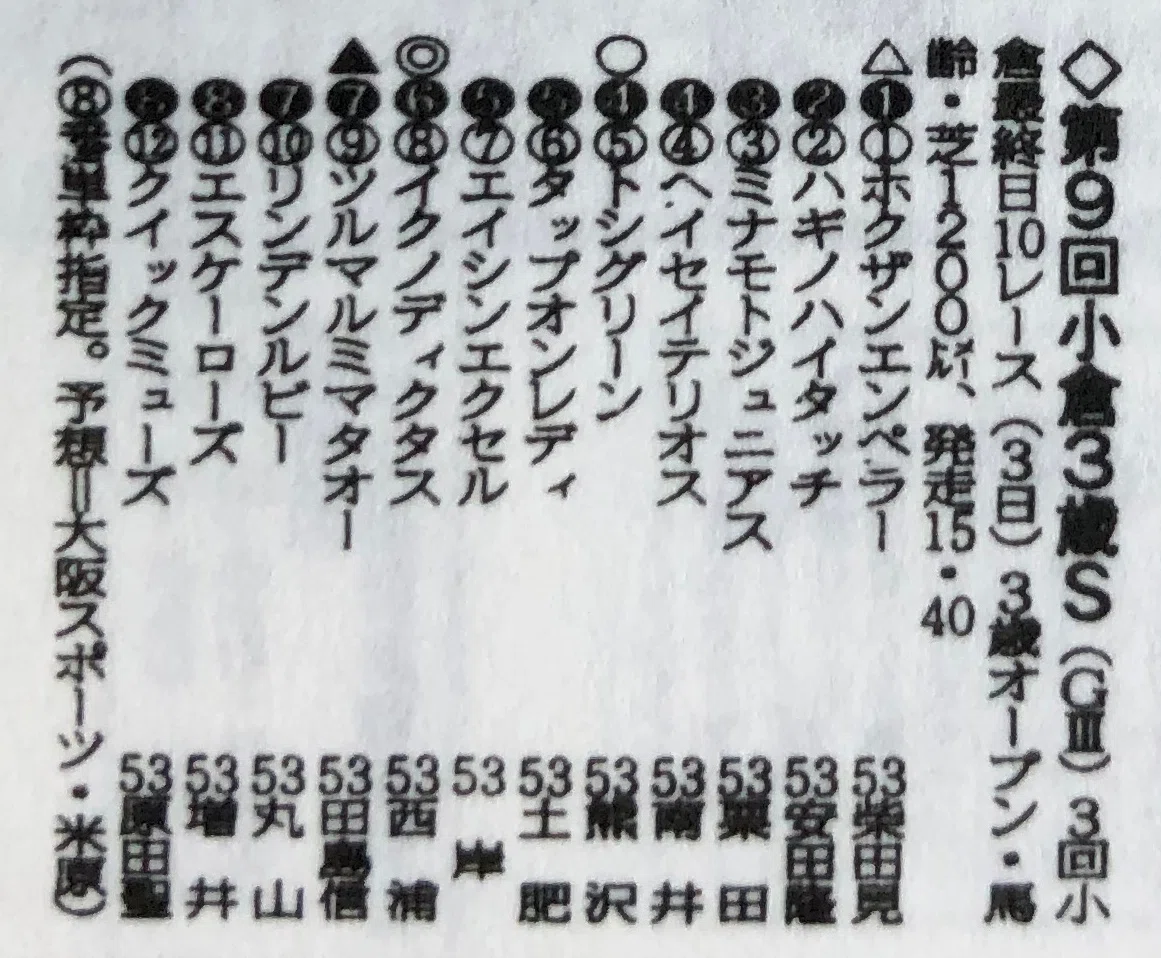 ◇第9回小倉3歳S（GⅢ）3回小
倉最終日10レース（3日）3歳オープン・馬
齢・芝1200㍍、発走15・40
△❶①ホクザンエンペラー 53柴田見
❷②ハギノハイタッチ 53安田隆
❸③ミナモトジュニアス 53栗田
❹④ヘイセイテリオス 53南井
○❹⑤トシグリーン 53熊沢
❺⑥タップオンレディ 53土肥
❺⑦エイシンエクセル 53岸
◎❻⑧イクノディクタス 53西浦
▲❼⑨ツルマルミマタオー 53田島信
❼⑩リンデンルビー 53丸山
❽⑪エスケーローズ 53増井
❽⑫クイックミューズ 53原田聖
（⑧番単枠指定。予想＝大阪スポーツ・米原）